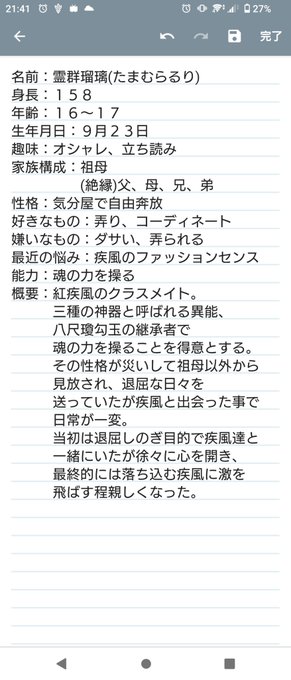 21:41
27%
完了
名前：霊群瑠璃(たまむらるり)
身長：１５８
年齢：１６～１７
生年月日：９月２３日
趣味：オシャレ、立ち読み
家族構成：祖母
(絶縁)父、母、兄、弟
性格：気分屋で自由奔放
好きなもの：弄り、コーディネート
嫌いなもの：ダサい、弄られる
最近の悩み：疾風のファッションセンス
能力：魂の力を操る
概要：紅疾風のクラスメイト。
三種の神器と呼ばれる異能、
八尺瓊勾玉の継承者で
魂の力を操ることを得意とする。
その性格が災いして祖母以外から
見放され、退屈な日々を
送っていたが疾風と出会った事で
日常が一変。
当初は退屈しのぎ目的で疾風達と
一緒にいたが徐々に心を開き、
最終的には落ち込む疾風に激を
飛ばす程親しくなった。